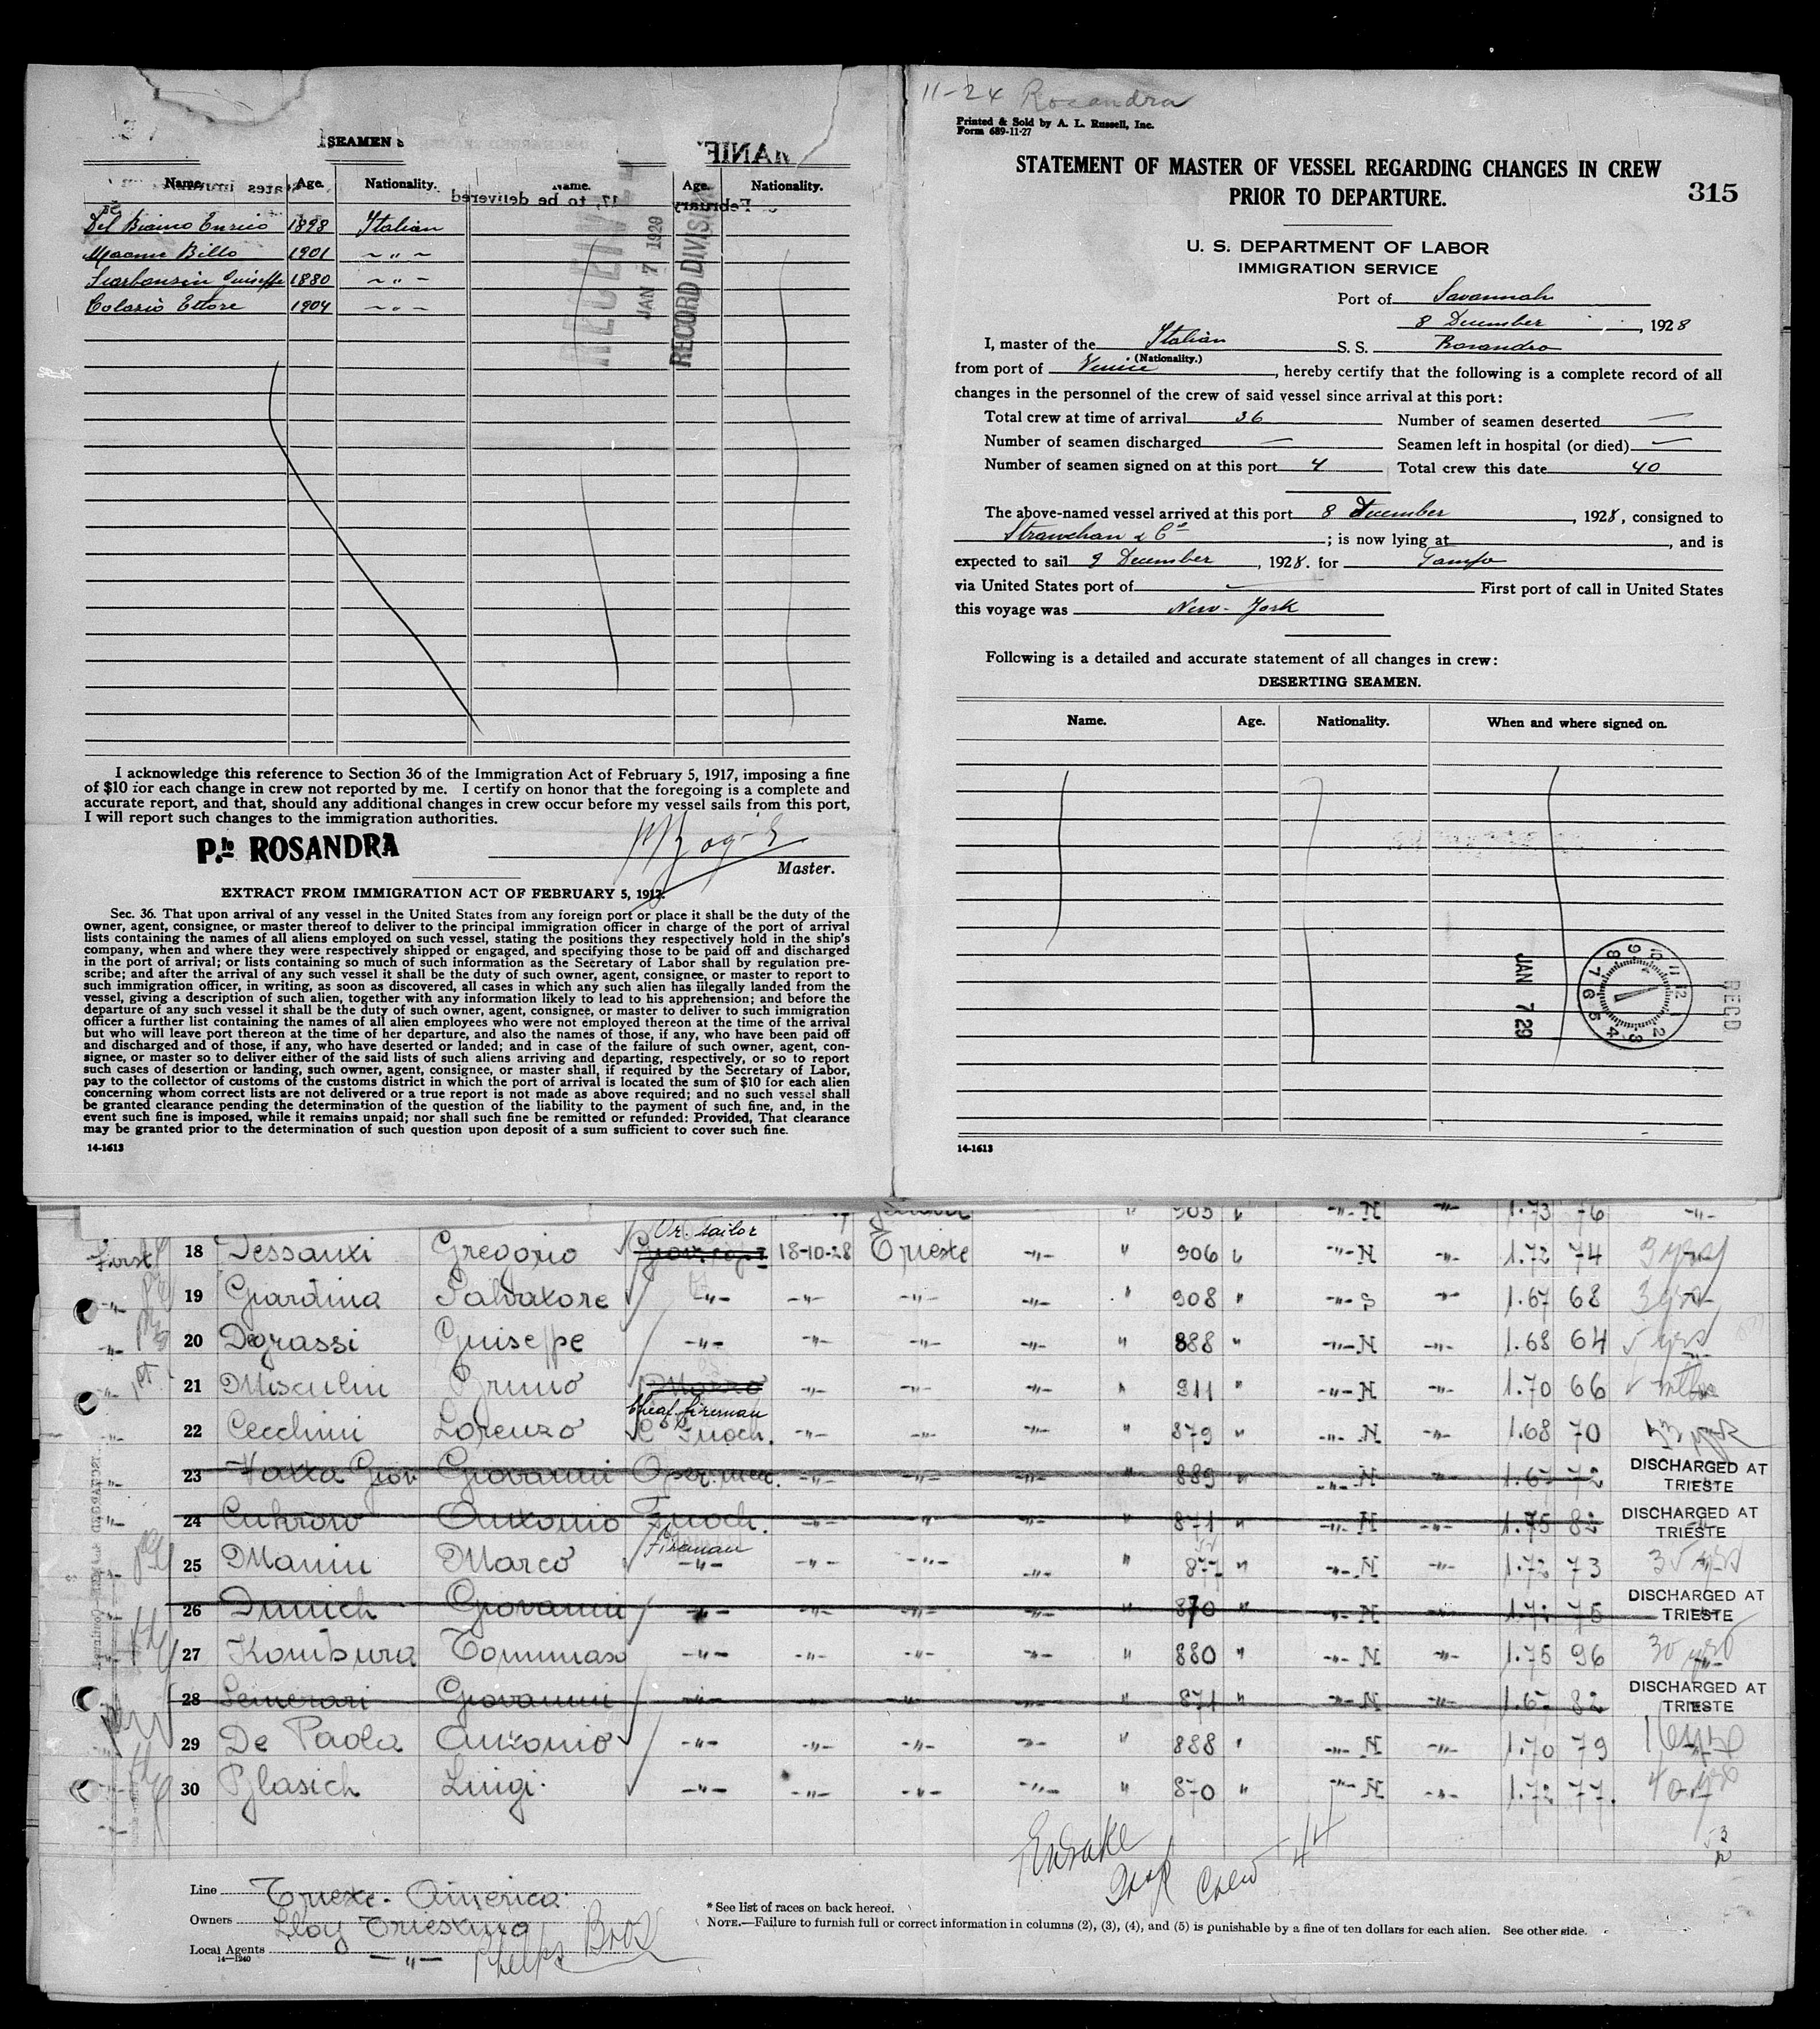 SEAMEN
Name. Age. Nationality. Name. Age. Nationality.
Del Bianco Enrico 1898 Italian
Billo 1901 ~ " ~
1880 ~ " ~
Colario Ettore 1904 ~ " ~
JAN 7 1929
RECORD DIVISION
I acknowledge this reference to Section 36 of the Immigration Act of February 5, 1917, imposing a fine
of $10 for each change in crew not reported by me. I certify on honor that the foregoing is a complete and
accurate report, and that, should any additional changes in crew occur before my vessel sails from this port,
I will report such changes to the immigration authorities.
P.fo ROSANDRA
Master.
EXTRACT FROM IMMIGRATION ACT OF FEBRUARY 5, 1917.
Sec. 36. That upon arrival of any vessel in the United States from any foreign port or place it shall be the duty of the
owner, agent, consignee, or master thereof to deliver to the principal immigration officer in charge of the port of arrival
lists containing the names of all aliens employed on such vessel, stating the positions they respectively hold in the ship's
company, when and where they were respectively shipped or engaged, and specifying those to be paid off and discharged
in the port of arrival; or lists containing so much of such information as the Secretary of Labor shall by regulation pre-
scribe; and after the arrival of any such vessel it shall be the duty of such owner, agent, consignee, or master to report to
such immigration officer, in writing, as soon as discovered, all cases in which any such alien has illegally landed from the
vessel, giving a description of such alien, together with any information likely to lead to his apprehension; and before the
departure of any such vessel it shall be the duty of such owner, agent, consignee, or master to deliver to such immigration
officer a further list containing the names of all alien employees who were not employed thereon at the time of the arrival
but who will leave port thereon at the time of her departure, and also the names of those, if any, who have been paid off
and discharged and of those, if any, who have deserted or landed; and in case of the failure of such owner, agent, con-
signee, or master so to deliver either of the said lists of such aliens arriving and departing, respectively, or so to report
such cases of desertion or landing, such owner, agent, consignee, or master shall, if required by the Secretary of Labor,
pay to the collector of customs of the customs district in which the port of arrival is located the sum of $10 for each alien
concerning whom correct lists are not delivered or a true report is not made as above required; and no such vessel shall
be granted clearance pending the determination of the question of the liability to the payment of such fine, and, in the
event such fine is imposed, while it remains unpaid; nor shall such fine be remitted or refunded: Provided, That clearance
may be granted prior to the determination of such question upon deposit of a sum sufficient to cover such fine.
14-1613
11-24 Rosandra
Printed & Sold by A. L. Russell, Inc.
Form 689-11-27
STATEMENT OF MASTER OF VESSEL REGARDING CHANGES IN CREW
PRIOR TO DEPARTURE.
315
U. S. DEPARTMENT OF LABOR
IMMIGRATION SERVICE
Port of Savannah
8 December, 1928
I, master of the Italian S. S. Rosandra
(Nationality.)
from port of Venice, hereby certify that the following is a complete record of all
changes in the personnel of the crew of said vessel since arrival at this port:
Total crew at time of arrival 36 Number of seamen deserted —
Number of seamen discharged — Seamen left in hospital (or died) —
Number of seamen signed on at this port 4 Total crew this date 40
The above-named vessel arrived at this port 8 December, 1928, consigned to
Strawchan & Co; is now lying at, and is
expected to sail 9 December, 1928. for Tampa
via United States port of — First port of call in United States
this voyage was New-York
Following is a detailed and accurate statement of all changes in crew:
DESERTING SEAMEN.
Name. Age. Nationality. When and where signed on.
JAN 7 29
RECD
14-1613
905 " -"- N -"- 1.73 76 -"-
First 18 Dessanti Gregorio Or. sailor 18-10-28 Trieste -"- " 906 " -"- N -"- 1.72 74
-"- 19 Giardina Salvatore -"- -"- -"- -"- " 908 " -"- S -"- 1.67 68 3 yrs
-"- 20 Degrassi Guiseppe -"- -"- -"- -"- " 888 " -"- N -"- 1.68 64 5 yrs
-"- 21 Musculin Bruno Mozzo -"- -"- -"- " 911 " -"- N -"- 1.70 66
Cheaf fireman
-"- 22 Cecchini Lorenzo C° Fuoch. -"- -"- -"- " 879 " -"- N -"- 1.68 70
-"- 23 Giovanni Oper.mec. -"- -"- -"- " 889 " -"- N -"- 1.67 72 DISCHARGED AT TRIESTE
-"- 24 Antonio Fuoch. -"- -"- -"- " 871 " -"- N -"- 1.75 82 DISCHARGED AT TRIESTE
fireman
-"- 25 Manin Marco -"- -"- -"- -"- " 877 " -"- N -"- 1.72 73 35 yrs
-"- 26 Dunich Giovanni -"- -"- -"- -"- " 870 " -"- N -"- 1.72 75 DISCHARGED AT TRIESTE
27 Kombura Tommaso -"- -"- -"- -"- " 880 " -"- N -"- 1.75 96 30 yrs
28 Semerari Giovanni -"- -"- -"- -"- " 871 " -"- N -"- 1.67 82 DISCHARGED AT TRIESTE
29 De Paola Antonio -"- -"- -"- -"- " 888 " -"- N -"- 1.70 79
30 Blasich Luigi -"- -"- -"- -"- " 870 " -"- N -"- 1.72 77. 40 yrs
Crew 44
Line Trieste-America
Owners Lloy Triestino
Local Agents -"- Phelps Bros
14—1240
* See list of races on back hereof.
NOTE.—Failure to furnish full or correct information in columns (2), (3), (4), and (5) is punishable by a fine of ten dollars for each alien. See other side.